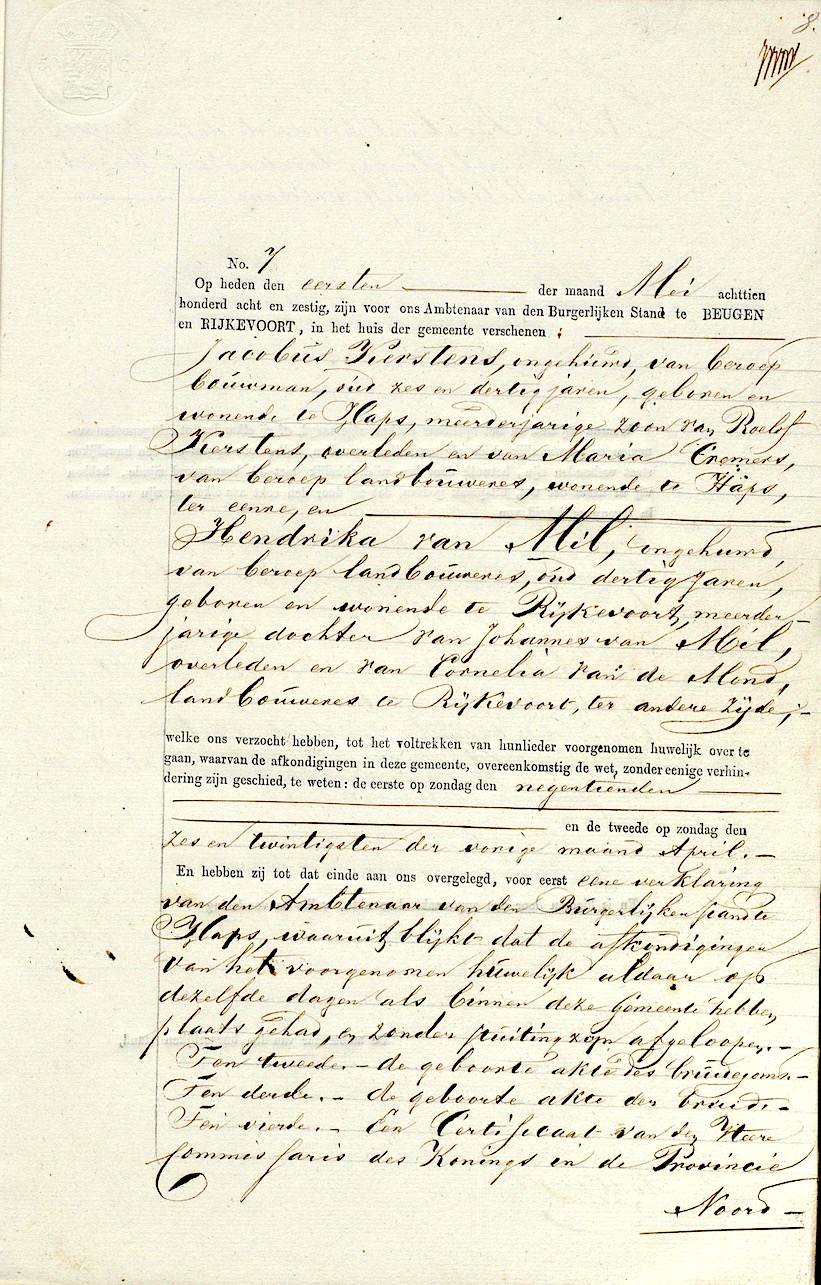 8.
5 C
No. 7
Op heden den eersten der maand Mei achttien
honderd acht en zestig, zijn voor ons Ambtenaar van den Burgerlijken Stand te BEUGEN
en RIJKEVOORT, in het huis der gemeente verschenen :
Jacobus Kerstens, ongehuwd, van beroep
bouwman, oud zes en dertig jaren, geboren en
wonende te Haps, meerderjarige zoon van Roelof
Kerstens, overleden en van Maria Cremers,
van beroep landbouweres, wonende te Haps,
ter eenre, en
Hendrika van Mil, ongehuwd,
van beroep landbouweres, oud dertig jaren,
geboren en wonende te Rijkevoort, meerder-
jarige dochter van Johannes van Mil,
overleden en van Cornelia van de Mond,
landbouweres te Rijkevoort, ter andere zijde;-
welke ons verzocht hebben, tot het voltrekken van hunlieder voorgenomen huwelijk over te
gaan, waarvan de afkondigingen in deze gemeente, overeenkomstig de wet, zonder eenige verhin-
dering zijn geschied, te weten : de eerste op zondag den negentienden
en de tweede op zondag den
zes en twintigsten der vorige maand April.-
En hebben zij tot dat einde aan ons overgelegd, voor eerst eene verklaring
van den Ambtenaar van den Burgerlijken stand te
Haps, waaruit blijkt dat de afkondigingen
van het voorgenomen huwelijk aldaar op
dezelfde dagen als binnen deze Gemeente hebben
plaats gehad, en zonder stuiting zijn afgeloopen.-
Ten tweede.- de geboorte akte des bruidegoms.-
Ten derde.- de geboorte akte der bruid.-
Ten vierde.- Een Certificaat van den Heere
Commissaris des Konings in de Provincie
Noord-